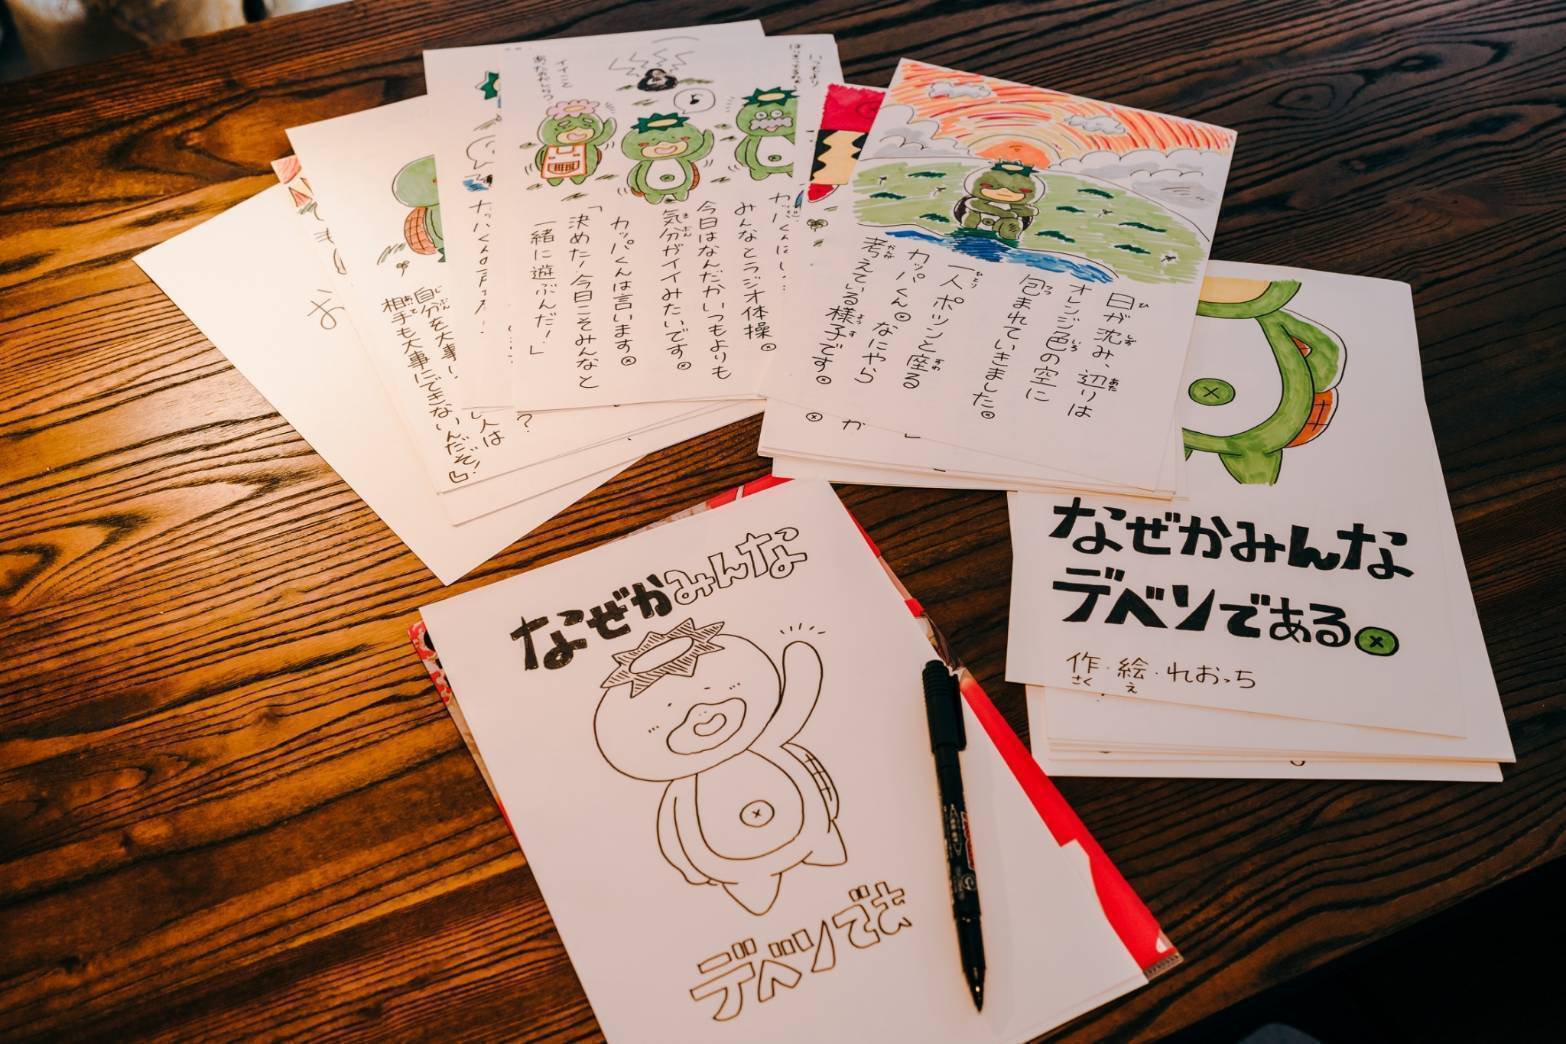 カッパくんは言います。
「決めた！今日こそみんなと
一緒に遊ぶんだ！」
みんなとラジオ体操。
今日はなんだかいつもよりも
気分がイイみたいです。
日が沈み、辺りは
オレンジ色の空に
包まれていきました。
一人ポツンと座る
カッパくん。なにやら
考えている様子です。
自分を大事に
相手も大事にできないんだぞ！』
なぜかみんな
デベソである。
作・絵・れおっち
さく え
なぜかみんな
デベソでも